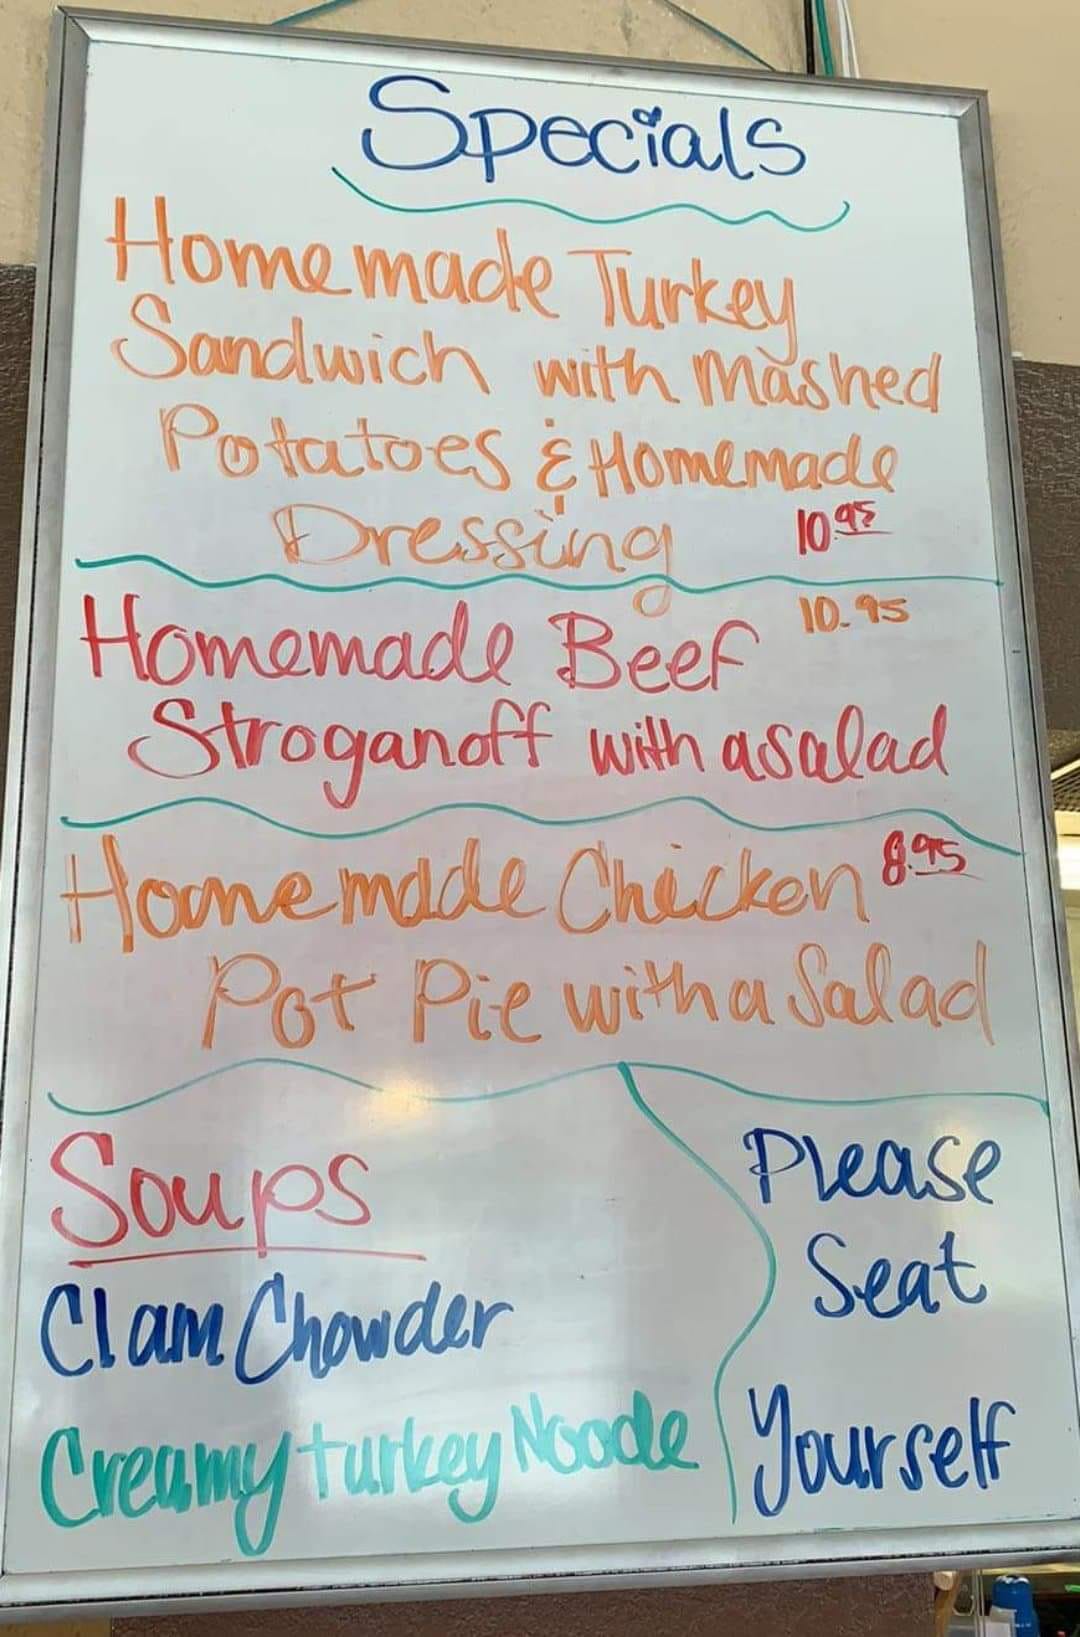 Specials
Homemade Turkey
Sandwich with Mashed
Potatoes & Homemade
Dressing 10.95
Homemade Beef 10.95
Stroganoff with a salad
Homemade Chicken 8.95
Pot Pie with a Salad
Soups
Clam Chowder
Creamy turkey Noodle
Please
Seat
Yourself